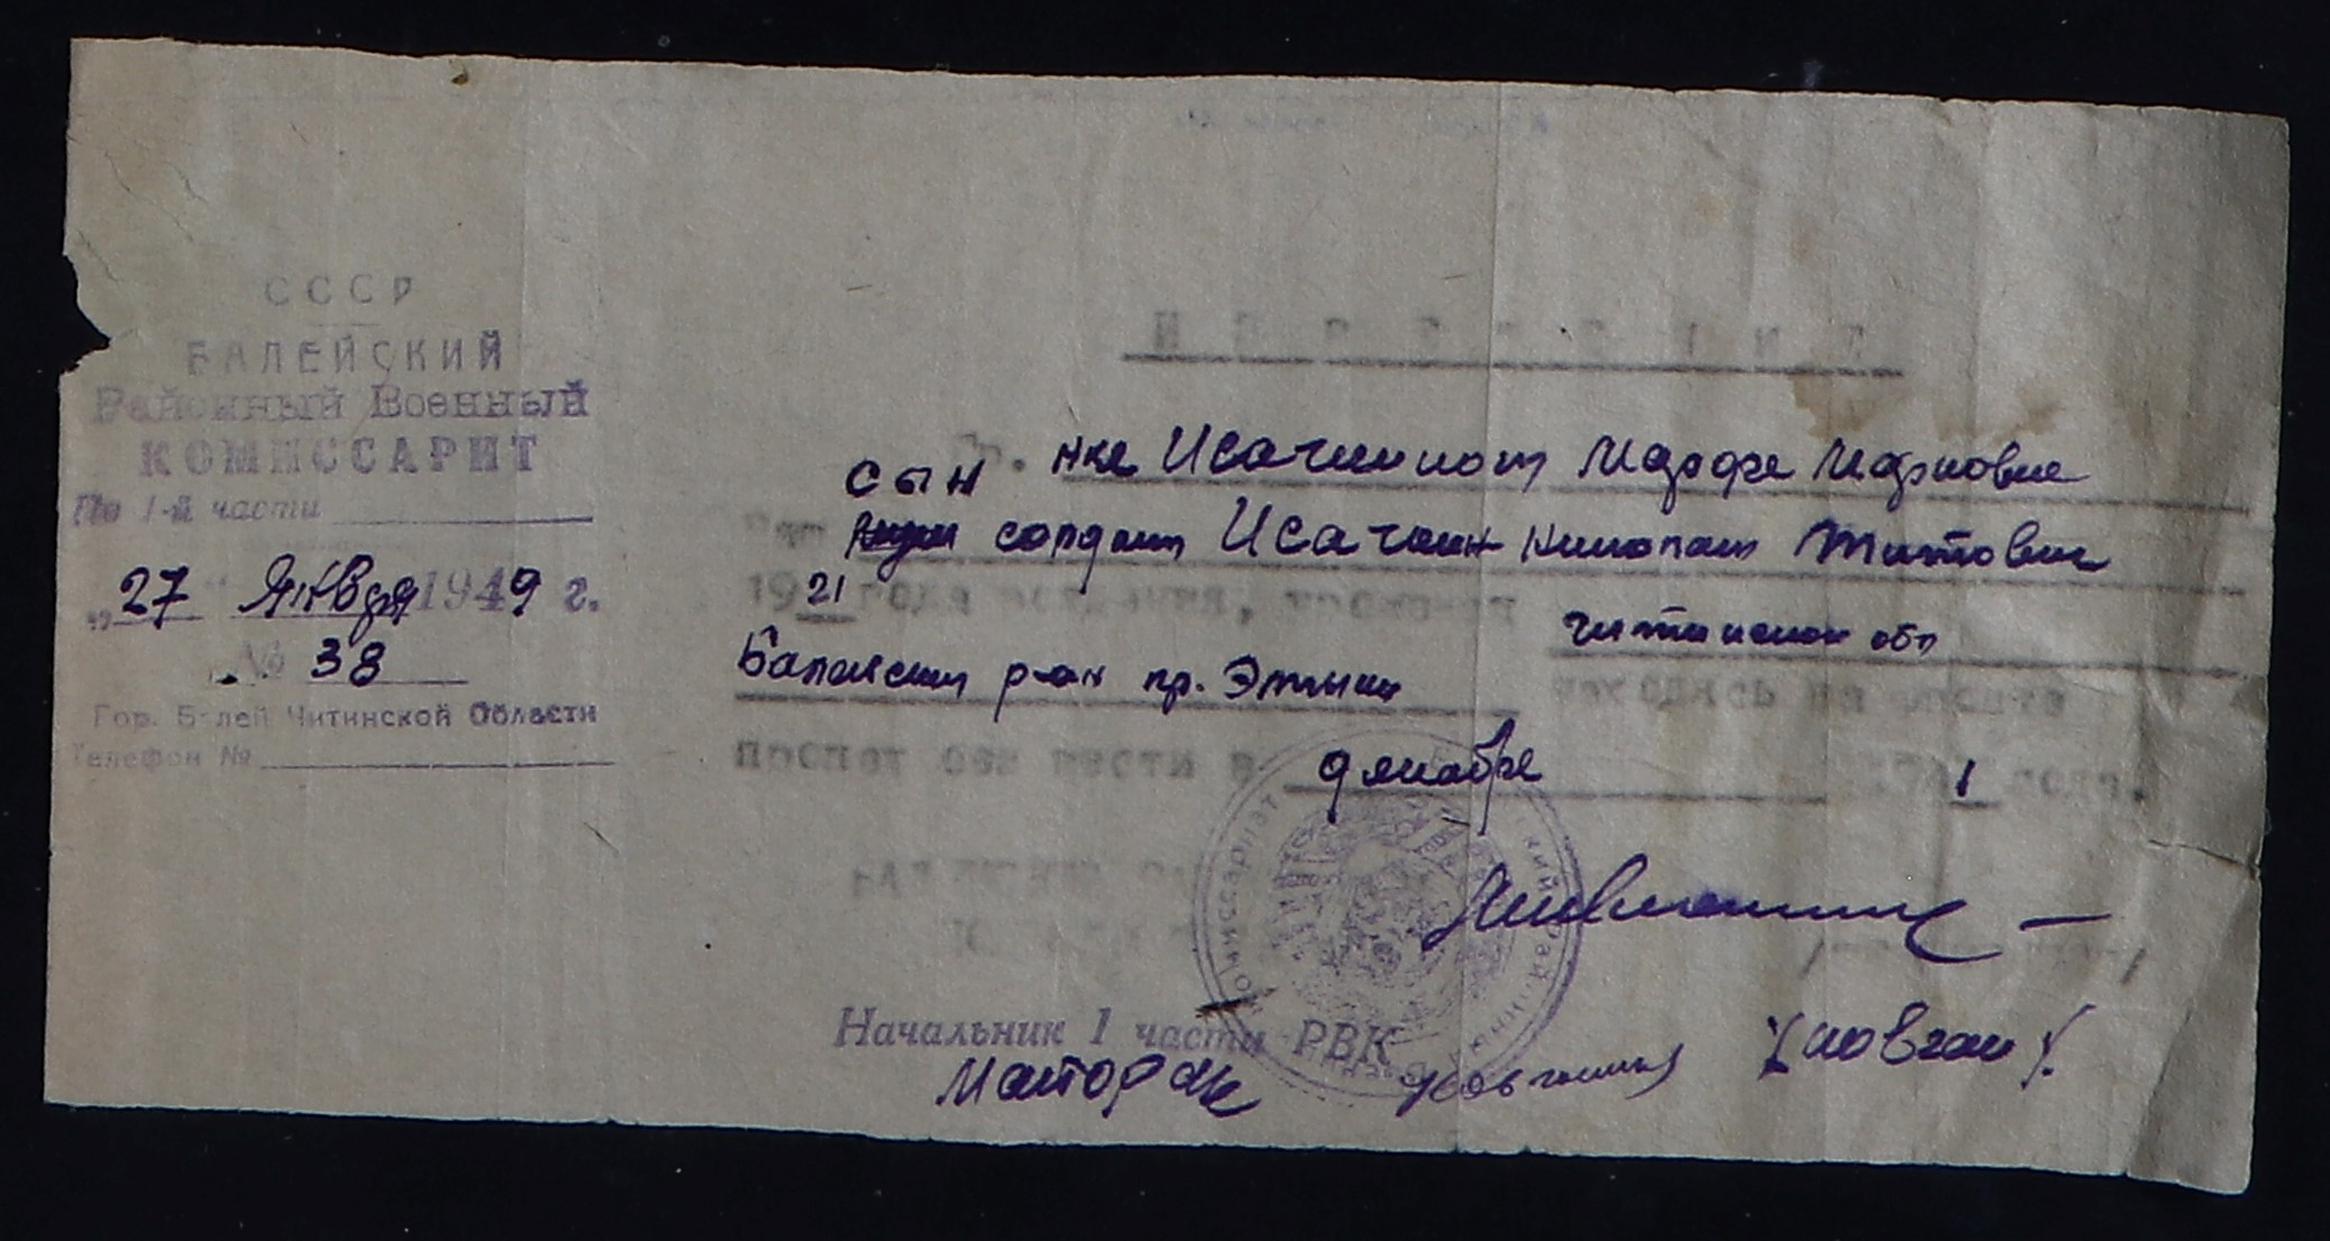 СССР
БАЛЕЙСКИЙ
Районный Военный
КОМИССАРИТ
По 1-й части
„27" Января 1949 г.
№ 38
Гор. Балей Читинской Области
Телефон №
ИЗВЕЩЕНИЕ
Гр. нке Исачкиной Марфе Марковне
сын
солдат Исачкин Николай Титович
1921 года рождения, уроженец
Читинской обл
Балейский р-он пр. Этыки
находясь на фронте
пропал без вести в декабре 1 года.
Начальник 1 части РВК
Майор а/с
/Човган/